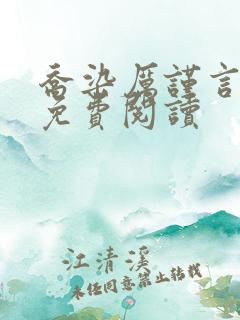 喬染厲謹言
免費閱讀
江清溪
未經同意禁止轉載